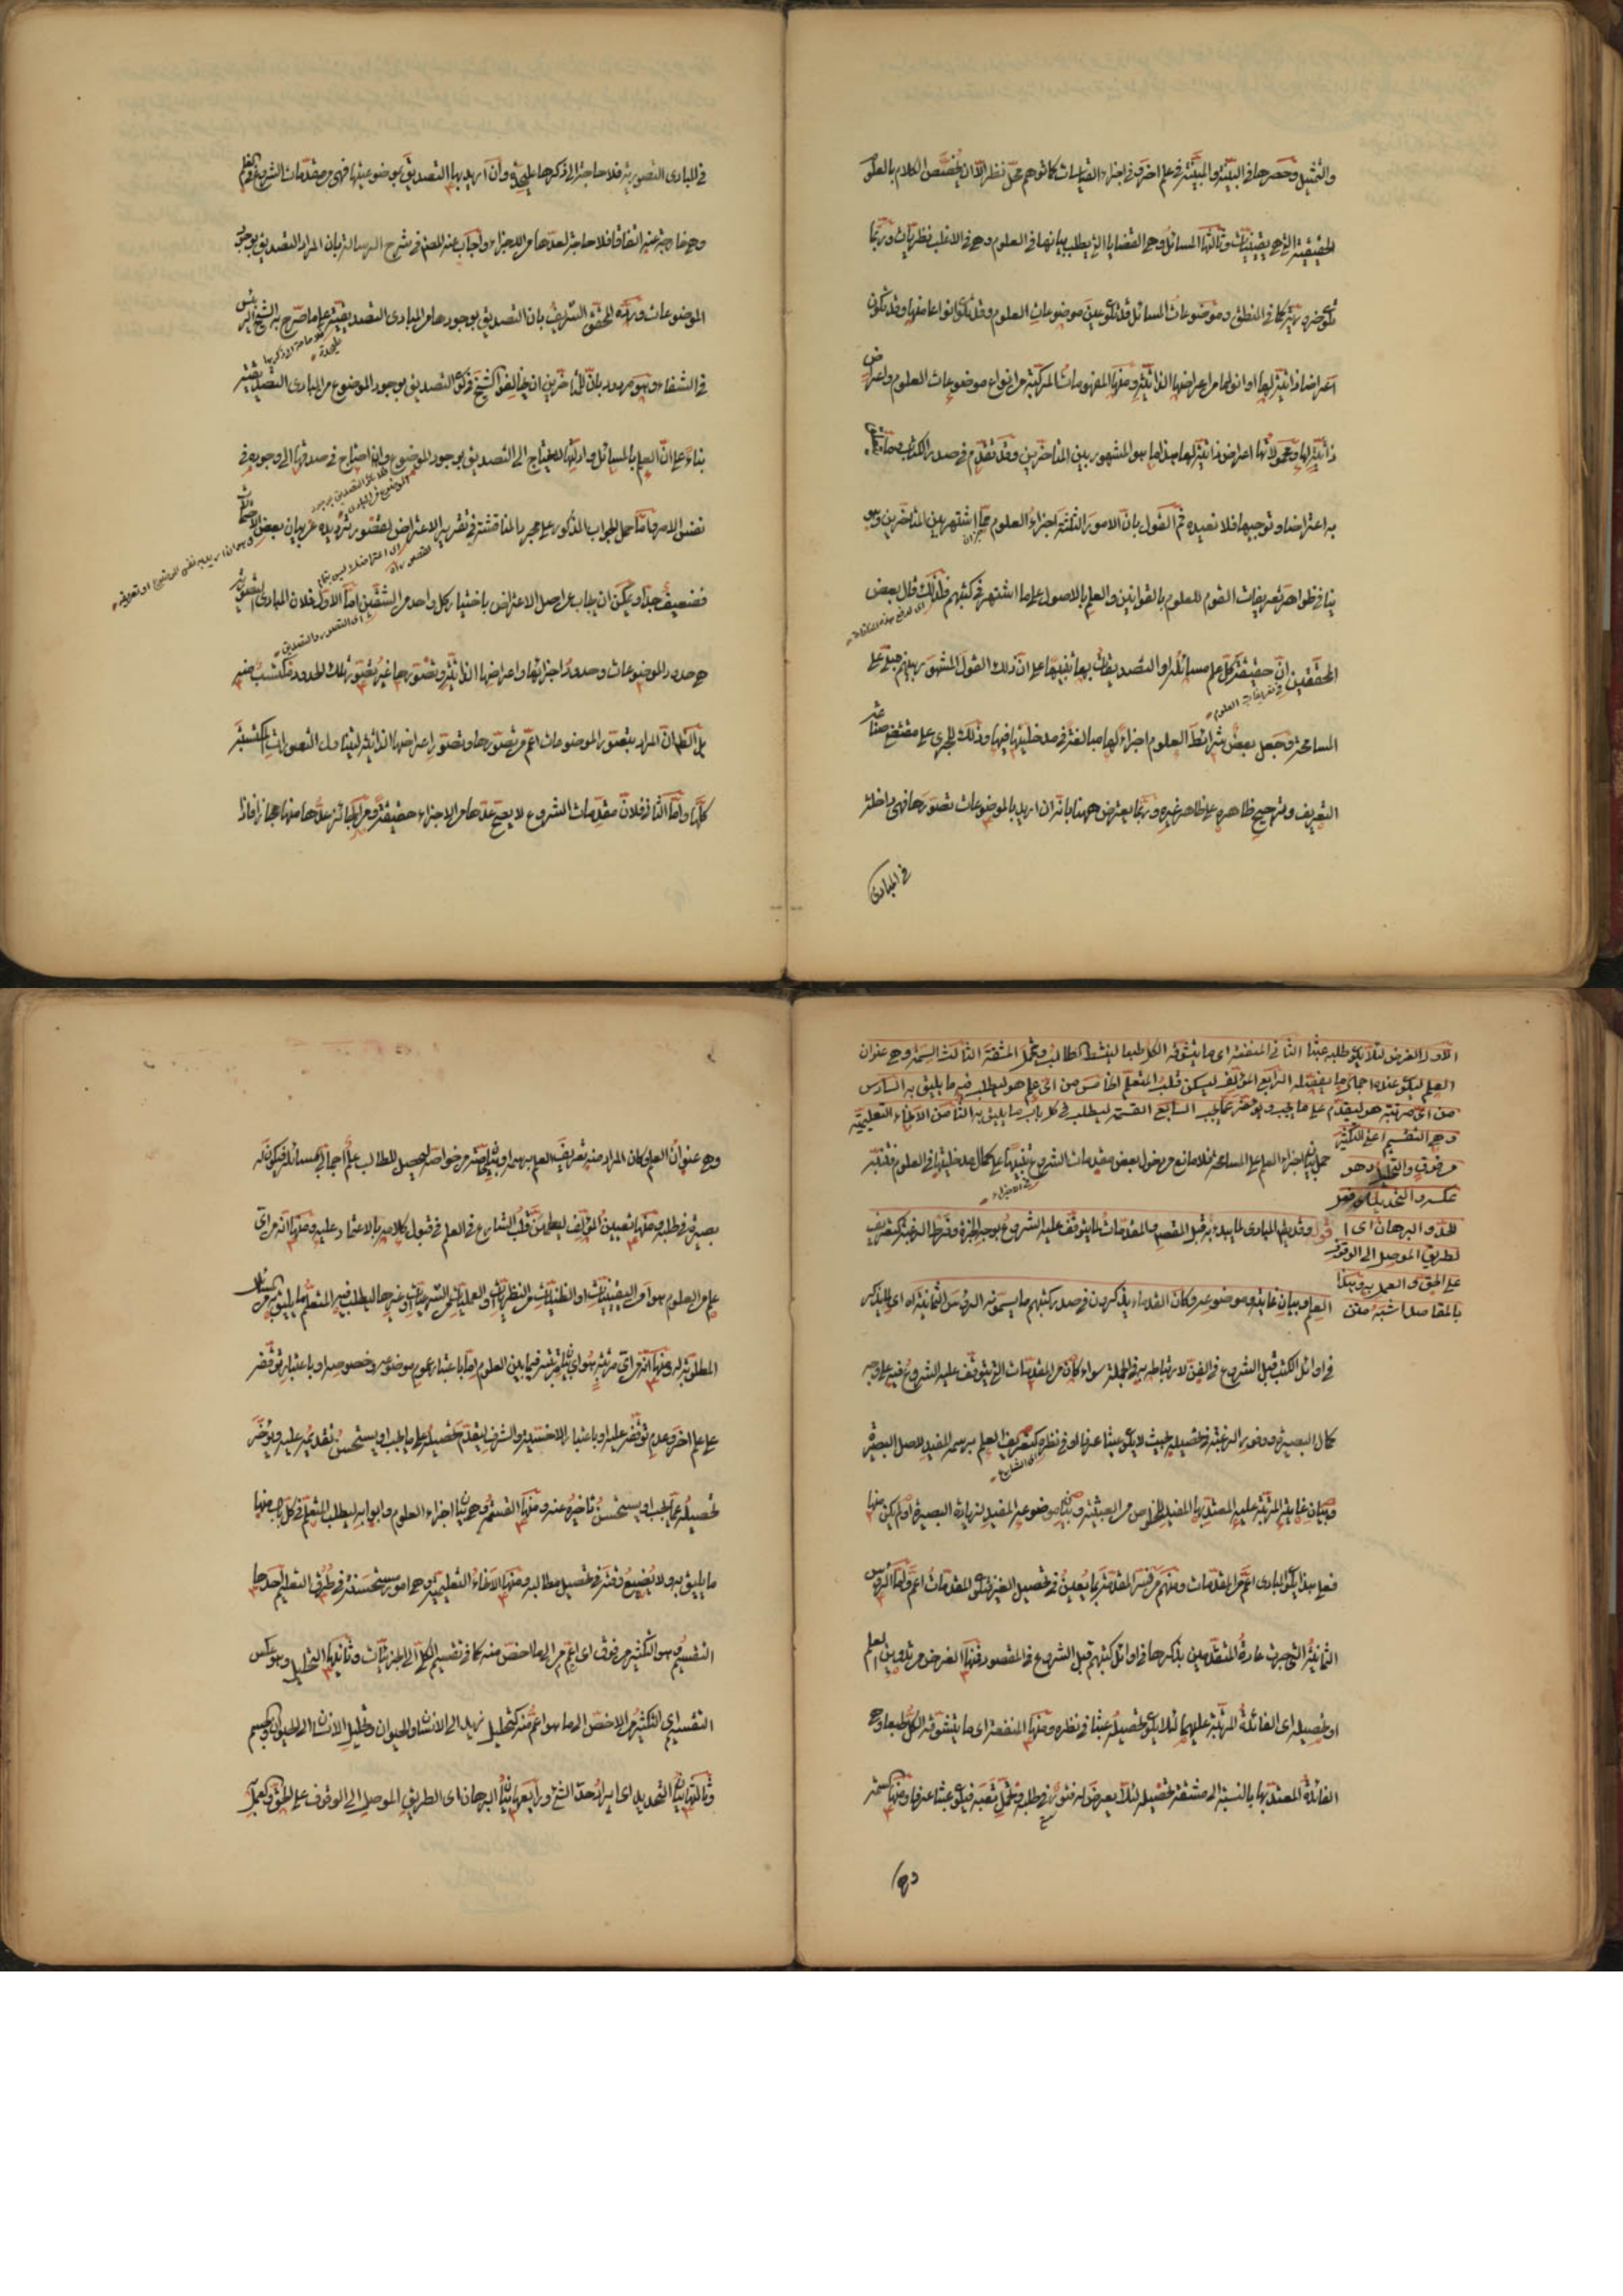 والتمثيل وحصرها في البينة والمبينة في علم اخر في اجزاء القياسات كما توهم محل نظر الا ان يخصص الكلام بالعلوم
الحقيقية التي هي يقينيات وثالثها المسائل وهي القضايا التي يطلب بيانها في العلوم وهي في الاغلب نظريات وربما
تكون ضرورية كما في المنطق وموضوعات المسائل قد تكون عين موضوعات العلوم وقد تكون انواعا منها وقد تكون
اعراضا ذاتية لها او انواعا من اعراضها الذاتية ومنها المفهومات المركبة من انواع موضوعات العلوم واعراض
ذاتية لها ومحمولاتها اعراض ذاتية لها هذا ما هو المشهور بين المتأخرين وقد تقدم في صدر الكتاب
به اعتراضا وتوجيها فلا نعيده ثم القول بان الامور الثلثة اجزاء العلوم مما اشتهر بين المتأخرين وهو
ينافي ظواهر تعريفات القوم للعلوم بالقوانين والعلم بالاصول على ما اشتهر في كتبهم فلذلك قال بعض
المحققين ان حقيقة كل علم مسائله او التصديقات بها تنبيها على ان ذلك القول المشهور بينهم مبني على
المسامحة وجعل بعض شرائط العلوم اجزاء لها مبالغة في مدخليتها فيها وذلك الجري على مقتضى صناعة
التعريف وترجيح ظاهره على ظاهر غيره وربما يعترض ههنا بانه ان اريد بالموضوعات تصورها فهي داخلة
في المبادي
في المبادي التصورية فلا حاجة الى ذكرها عليحدة وان اريد بها التصديق بموضوعيتها فهي من مقدمات الشروع في العلم
وهي خارجة عنه اتفاقا فلا حاجة لعدها من الاجزاء واجاب عنه المص في شرح الرسالة بان المراد التصديق بوجود
الموضوعات ورده المحقق الشريف بان التصديق بوجودها من المبادي التصديقية على ما صرح به الشيخ الرئيس
في الشفاء وهو مردود بان للمتأخرين ان يخالفوا الشيخ في كون التصديق بوجود الموضوع من المبادي التصديقية
بناء على ان العلم بالمسائل وادلتها لا يحتاج الى التصديق بوجود الموضوع وان احتاج في صدقها الى وجوده في
نفس الامر واما حمل الجواب المذكور على مجرد المناقشة في تقرير الاعتراض لقصور ترديده عن بيان بعض الاحتمالات
فضعيف جدا ويمكن ان يجاب عن اصل الاعتراض باختيار كل واحد من الشقين اما الاول فلان المبادي التصورية
هي حدود الموضوعات وحدود اجزائها واعراضها الذاتية وتصورها غير تصور تلك الحدود مكتسب منه
بل الظ ان المراد بتصور الموضوعات اعم من تصورها وتصور اعراضها الذاتية ليتناول التصورات المكتسبة
كلها واما الثاني فلان مقدمات الشروع لا يصح عدها من الاجزاء حقيقة ومن الجائز عدها منها مجازا فاذا
الاول الغرض لئلا يكون طلبه عبثا الثاني المنفعة اي ما يتشوقه الكل طبعا لينشط الطالب ويتحمل المشقة الثالث السمة وهي عنوان
العلم ليكون عنده اجمال ما يفصله الرابع المؤلف ليسكن قلب المتعلم الخامس من اي علم هو ليطلب فيه ما يليق به السادس
من اي مرتبة هو ليقدم على ما يجب ويؤخر عما يجب السابع القسمة ليطلب في كل باب ما يليق به الثامن الانحاء التعليمية
وهي التقسيم اعني التكثير
من فوق والتحليل وهو
عكسه والتحديد اي فعل
الحد والبرهان اي
الطريق الموصل الى الوقوف
على الحق والعمل به وهذا
بالمقاصد اشبه متن
جعل اجزاء العلم على المسامحة فلا مانع من دخول بعض مقدمات الشروع تنبيها على كمال مدخليتها في العلوم فتنبه
قوله وقد يقال المبادي لما يبدء به قبل المقصد والمقدمات لما يتوقف عليه الشروع بوجه الخبرة وفرط الرغبة كتعريف
العلم وبيان غايته وموضوعه وكان القدماء يذكرون في صدر كتبهم ما يسمونه الرؤس الثمانية اي يذكر
في اوائل الكتب قبل الشروع في الفن لارتباطه به في الجملة سواء كان من المقدمات التي يتوقف عليه الشروع فيه على وجه
كمال البصيرة ووفور الرغبة في تحصيله بحيث لا يكون عبثا عرفا او في نظره كتعريف العلم برسمه المفيد لاصل البصيرة
وبيان غايته المرتبة عليه المعتد بها المفيد للخلوص من العبثية وبيان موضوعه المفيد لزيادة البصيرة او لم يكن منها
فعلى هذا يكون المبادي اعم من المقدمات ومنهم من فسر المقدمة بما يعين في تحصيل الفن فتكون المقدمات اعم واما الرؤس
الثمانية التي جرت عادة المتقدمين بذكرها في اوائل كتبهم قبل الشروع في المقصود فمنها الغرض من تدوين العلم
او تحصيله اي الفائدة المرتبة عليهما لئلا يكون تحصيله عبثا في نظره ومنها المنفعة اي ما يتشوقه الكل طبعا وهي
الفائدة المعتد بها بالنسبة الى مشقة تحصيله لئلا يعرض له فتور في طلبه وتحمل تعبه فيكون عبثا عرفا ومنها السمة
وهي
وهي عنوان العلم وكان المراد منه تعريف العلم برسمه او بيان خاصة من خواصه ليحصل للطالب علم اجمالي بمسائله فيكون له
بصيرة في طلبه ومنها تعيين المؤلف ليطمئن قلب الشارع في العلم في قبول كلامه بالاعتماد عليه ومنها انه من اي
علم من العلوم هو اي من اليقينيات او الظنيات من النظريات او العمليات من الشرعيات او غيرها ليطلب فيه المتعلم ما يليق به من المسائل
المطلوبة له ومنها انه من اي مرتبة هو اي بيان مرتبته فيما بين العلوم اما باعتبار عموم موضوعه وخصوصه او باعتبار توقفه
على علم اخر وعدم توقفه عليه او باعتبار الاخسية والشرف ليقدم تحصيله على ما يجب او يستحسن تقديمه عليه ويؤخر
تحصيله عما يجب او يستحسن تأخيره عنه ومنها القسمة وهي بيان اجزاء العلوم وابوابه ليطلب المتعلم في كل باب منها
ما يليق به ولا يضيع وقته في تحصيل مطالبه ومنها الانحاء التعليمية وهي امور مستحسنة في طرق التعليم احدها
التقسيم وهو التكثير من فوق اي من اعم الى ما اخص منه كما في تقسيم الكلي الى الجزئيات وثانيها التحليل وهو عكس
التقسيم اي التكثير من الاخص الى ما هو اعم منه كتحليل زيد الى الانسان والحيوان وتحليل الانسان الى الحيوان والجسم
وثالثها بيان التحديد اي ايراد حد الشئ ورابعها بيان البرهان اي الطريق الموصل الى الوقوف على الحق والعمل به